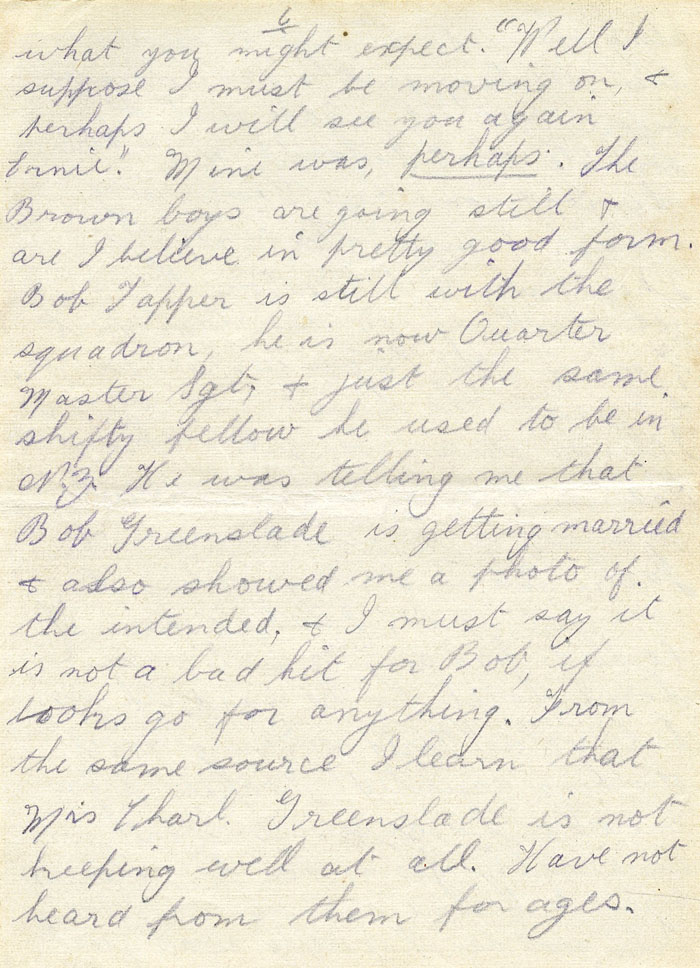 6
what you might expect. "Well I
suppose I must be moving on, &
perhaps I will see you again
Ernie". Mine was, perhaps. The
Brown boys are going still &
are I believe in pretty good form.
Bob Tapper is still with the
squadron, he is now Quarter
Master Sgt, & just the same
shifty fellow he used to be in
N.Z. He was telling me that
Bob Greenslade is getting married
& also showed me a photo of
the intended, & I must say it
is not a bad hit for Bob, if
looks go for anything. From
the same source I learn that
Mrs Charl. Greenslade is not
keeping well at all. Have not
heard from them for ages.